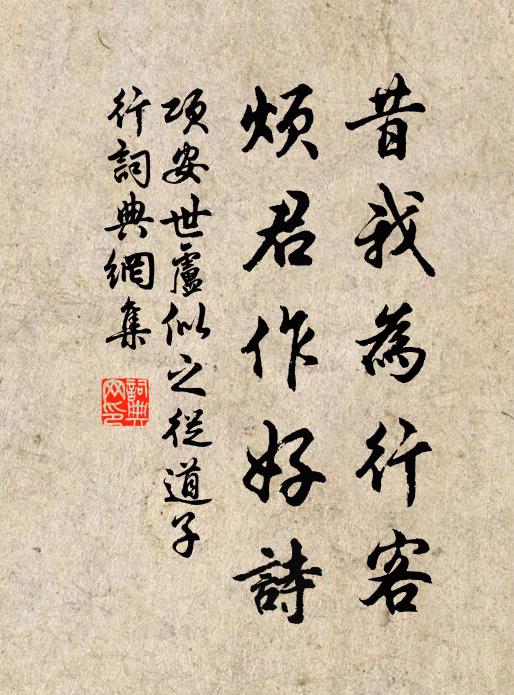 昔我為行客
煩君作好詩
項安世盧似之從道子
行詞典網集
詞典網印